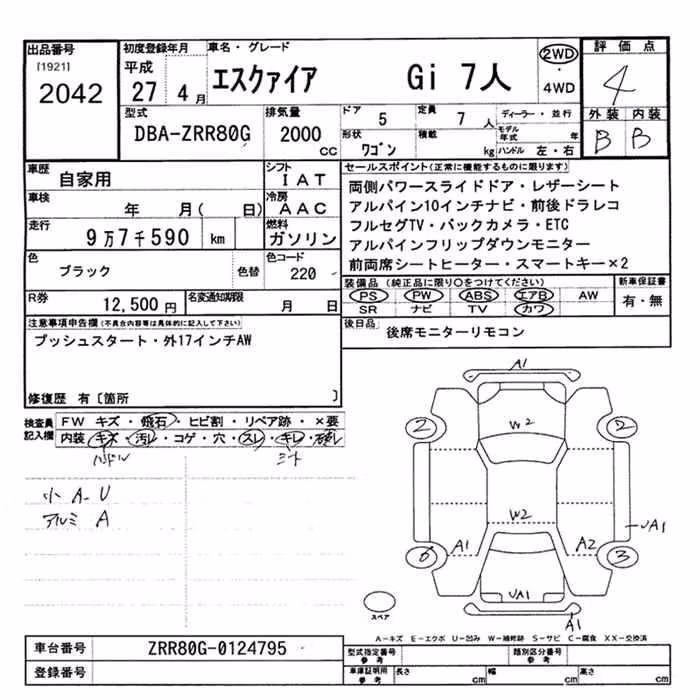 出品番号 初度登録年月 車名・グレード 評価点
[1921] 平成 エスクァイア Gi 7人 2WD
2042 27 4月 ・4WD 4
型式 排気量 ドア 定員 ディーラー・並行 外装 内装
DBA-ZRR80G 2000cc 5 7人 モデル年式 年 B B
形状 積載 kg ハンドル 左・右
ワゴン
車歴 自家用 シフト IAT セールスポイント(正常に機能するものに限ります)
車検 年 月( 日) 冷房 AAC 両側パワースライドドア・レザーシート
アルパイン10インチナビ・前後ドラレコ
走行 9万7千590 km 燃料 ガソリン フルセグTV・バックカメラ・ETC
アルパインフリップダウンモニター
色 ブラック 色替 色コード 220 前両席シートヒーター・スマートキー×2
装備品(純正品に限り○をつけてください) 新車保証書
R券 12,500円 名変通知期限 月 日 PS PW ABS エアB AW 有・無
SR ナビ TV カワ
注意事項申告欄(不具合内容等は具体的に記入して下さい) 後日品 後席モニターリモコン
プッシュスタート・外17インチAW
修復歴 有〔箇所 〕
検査員記入欄 FW キズ・飛石・ヒビ割・リペア跡・×要
内装 キズ・汚レ・コゲ・穴・スレ・キレ・
ハンドル シート
小 A U
アルミ A
A1
2 W2 2
W2
UA1
6 A1 A2 3
UA1
スペア A1
A-キズ E-エクボ U-凹み W-補修跡 S-サビ C-腐食 XX-交換済
車台番号 ZRR80G-0124795 型式指定番号 参考 類別区分番号 参考
登録番号 車庫証明用 参考 長さ cm 幅 cm 高さ cm